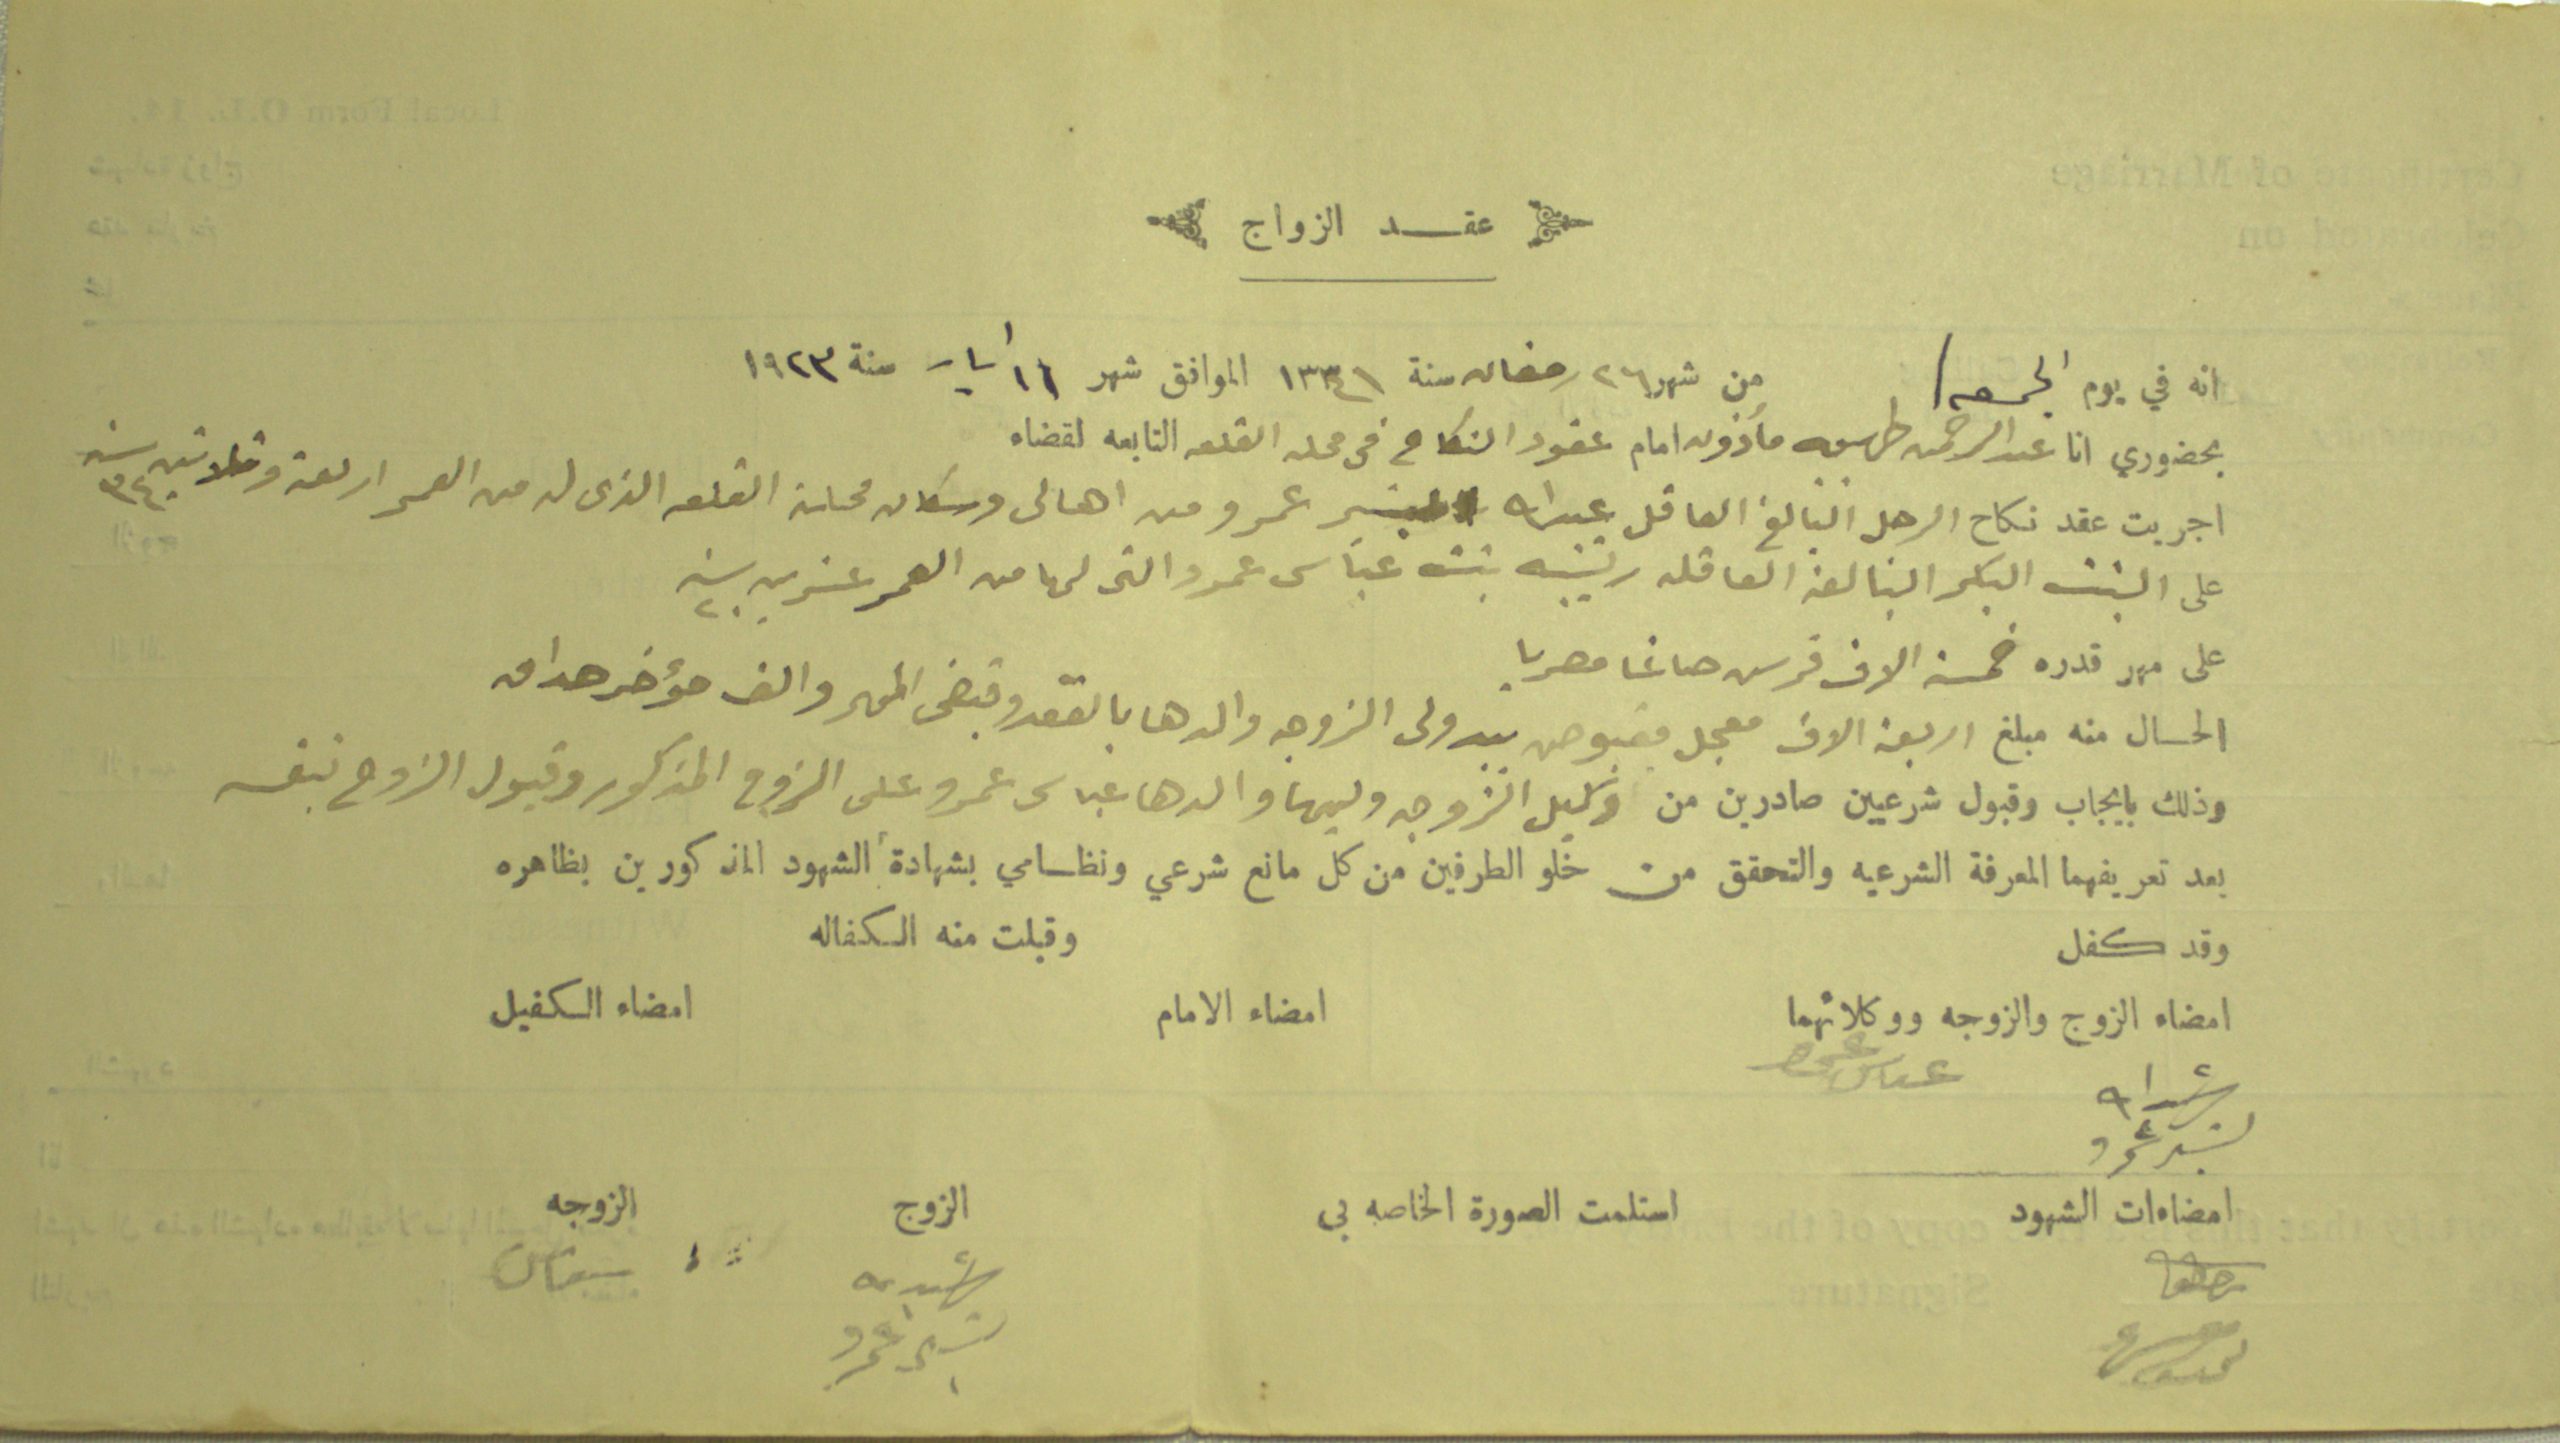 عقد الزواج
انه في يوم الجمعه من شهر ٢٦ رمضان سنة ١٣٤١ الموافق شهر ١١ ايار سنة ١٩٢٣
بحضوري انا عبد الرحمن مأذون امام عقود النكاح في محلة القلعه التابعه لقضاء
اجريت عقد نكاح الرجل البالغ العاقل عبدالله بشير عمرو من اهالى وسكان محلة القلعه الذى له من العمر اربعة وثلاثين سنه ٣٤
على البنت البكر البالغة العاقله بنت عباس عمرو التى لها من العمر عشرين سنه ٢٠
على مهر قدره خمسة الاف قرس صاغا مصريا
الحال منه مبلغ اربعة الاف معجل مقبوض بيد ولى الزوجه والدها بالعقد وقبض المهر والف مؤخر صداق
وذلك بايجاب وقبول شرعيين صادرين من وكيل الزوجه وليها والدها عباس عمرو على الزوج المذكور وقبول الزوج بنفسه
بعد تعريفهما المعرفة الشرعيه والتحقق من خلو الطرفين من كل مانع شرعي ونظامي بشهادة الشهود المذكورين بظاهره
وقد كفل وقبلت منه الكفاله
امضاء الزوج والزوجه ووكلائهما امضاء الامام امضاء الكفيل
عباس عمرو
عبدالله
بشير عمرو
امضاءات الشهود استلمت الصورة الخاصه بي الزوج الزوجه
عبدالله
بشير عمرو